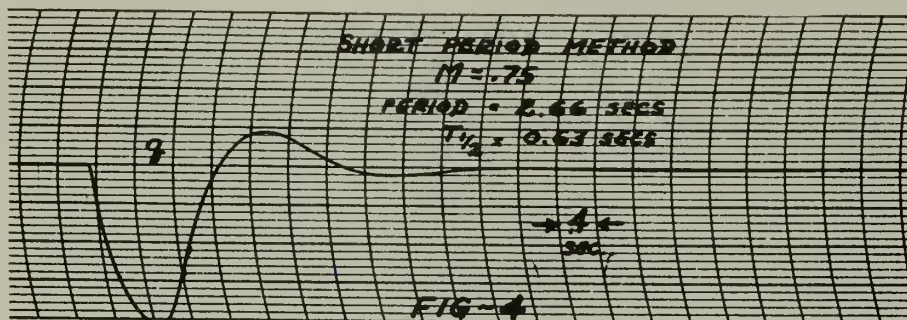 SHORT PERIOD METHOD
M = .75
PERIOD = 2.66 SECS
T 1/2 = 0.63 SECS
q
.4
SEC.
FIG-4